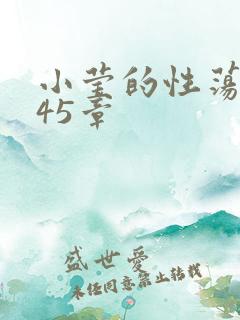 小莹的性荡
45章
盛世爱
未经同意禁止转载